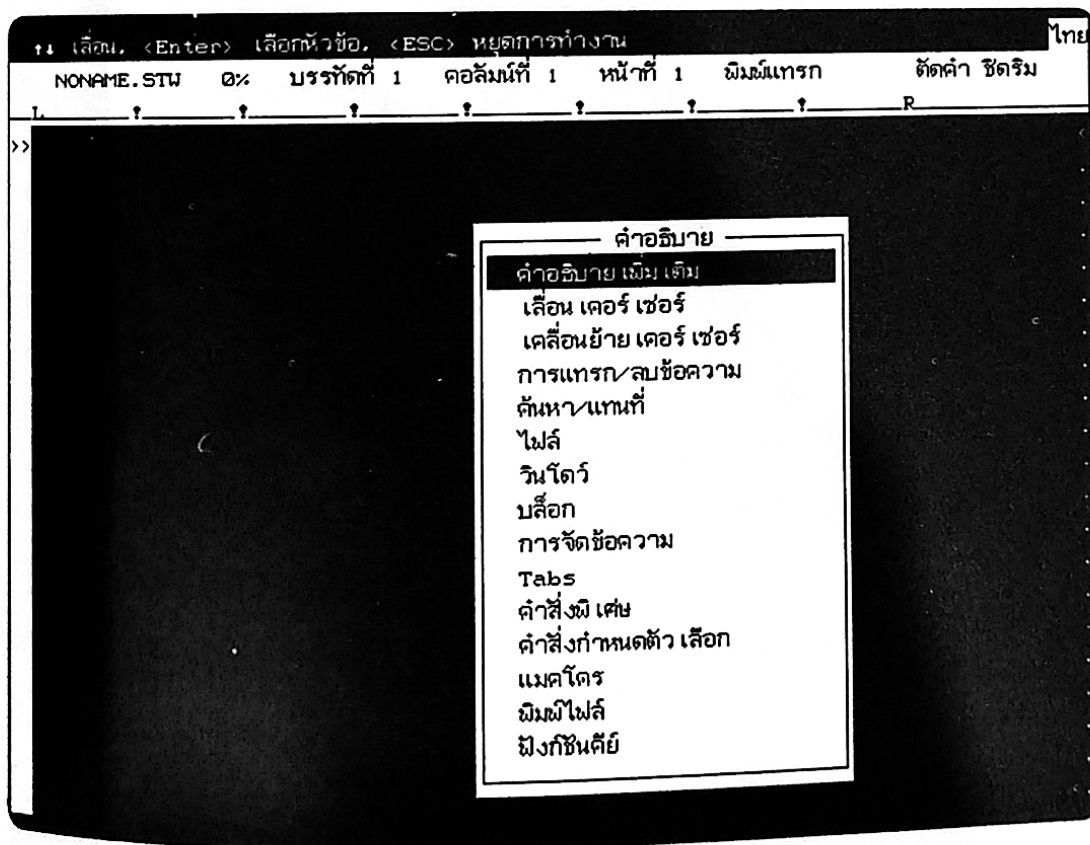 ↑↓ เลื่อน, <Enter> เลือกหัวข้อ, <ESC> หยุดการทำงาน ไทย
NONAME.STW 0% บรรทัดที่ 1 คอลัมน์ที่ 1 หน้าที่ 1 พิมพ์แทรก ตัดคำ ชิดริม
L R
>>
คำอธิบาย
คำอธิบายเพิ่มเติม
เลื่อนเคอร์เซอร์
เคลื่อนย้ายเคอร์เซอร์
การแทรก/ลบข้อความ
ค้นหา/แทนที่
ไฟล์
วินโดว์
บล็อก
การจัดข้อความ
Tabs
คำสั่งพิเศษ
คำสั่งกำหนดตัวเลือก
แมคโคร
พิมพ์ไฟล์
ฟังก์ชันคีย์